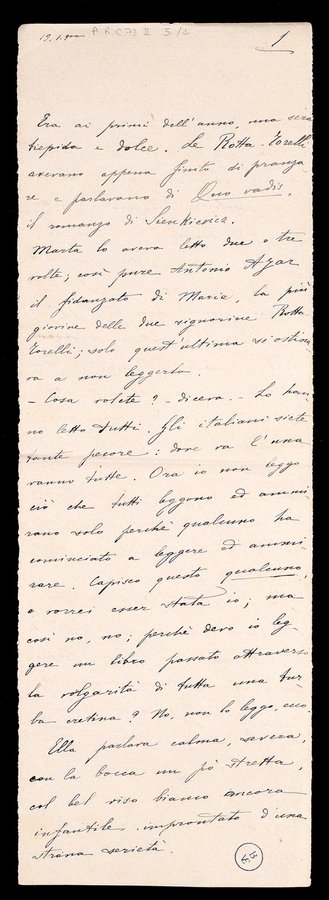 19.1.900
ARC 73 II 5/1
1
Era ai primi dell'anno, una sera
tiepida e dolce. Le Rotta-Torelli
avevano appena finito di pranza-
re e parlavano di Quo vadis,
il romanzo di Sienkievicz.
Marta lo aveva letto due o tre
volte; così pure Antonio Azar
il fidanzato di Maria, la più
giovine delle due signorine Rotta
Torelli; solo quest'ultima si ostina-
va a non leggerlo.
- Cosa volete? - diceva. - Lo han-
no letto tutti. Gli italiani siete
tante pecore: dove va l'una
vanno tutte. Ora io non leggo
ciò che tutti leggono ed ammi-
rano solo perchè qualcuno ha
cominciato a leggere ed ammi-
rare. Capisco questo qualcuno,
e vorrei esser stata io; ma
così no, no; perchè devo io leg-
gere un libro passato attraverso
la volgarità di tutta una tur-
ba cretina? No, non lo leggo, ecco.
Ella parlava calma, severa,
con la bocca un pò stretta,
col bel viso bianco ancora
infantile improntato d'una
strana serietà.